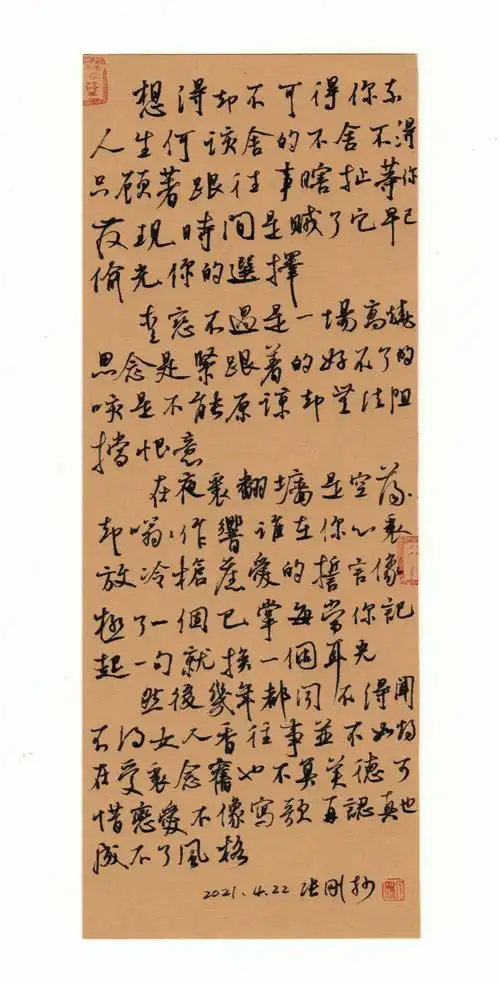 想得却不可得你奈
人生何该舍的不舍不得
只顧著跟往事瞎扯等你
发现時間是贼了它早已
偷光你的選擇
爱恋不過是一場高燒
思念是紧跟着的好不了的
咳是不能原谅却无法阻
擋恨意
在夜裏翻墻是空荡
却嗡嗡作響谁在你心裏
放冷槍旧爱的誓言像
極了一個巴掌每當你記
起一句就挨一個耳光
然後幾年都闻不得闻
不得女人香往事並不如烟
在爱裏念舊也不算美德可
惜戀愛不像寫歌再認真也
成不了風格
2021.4.22 张刚抄